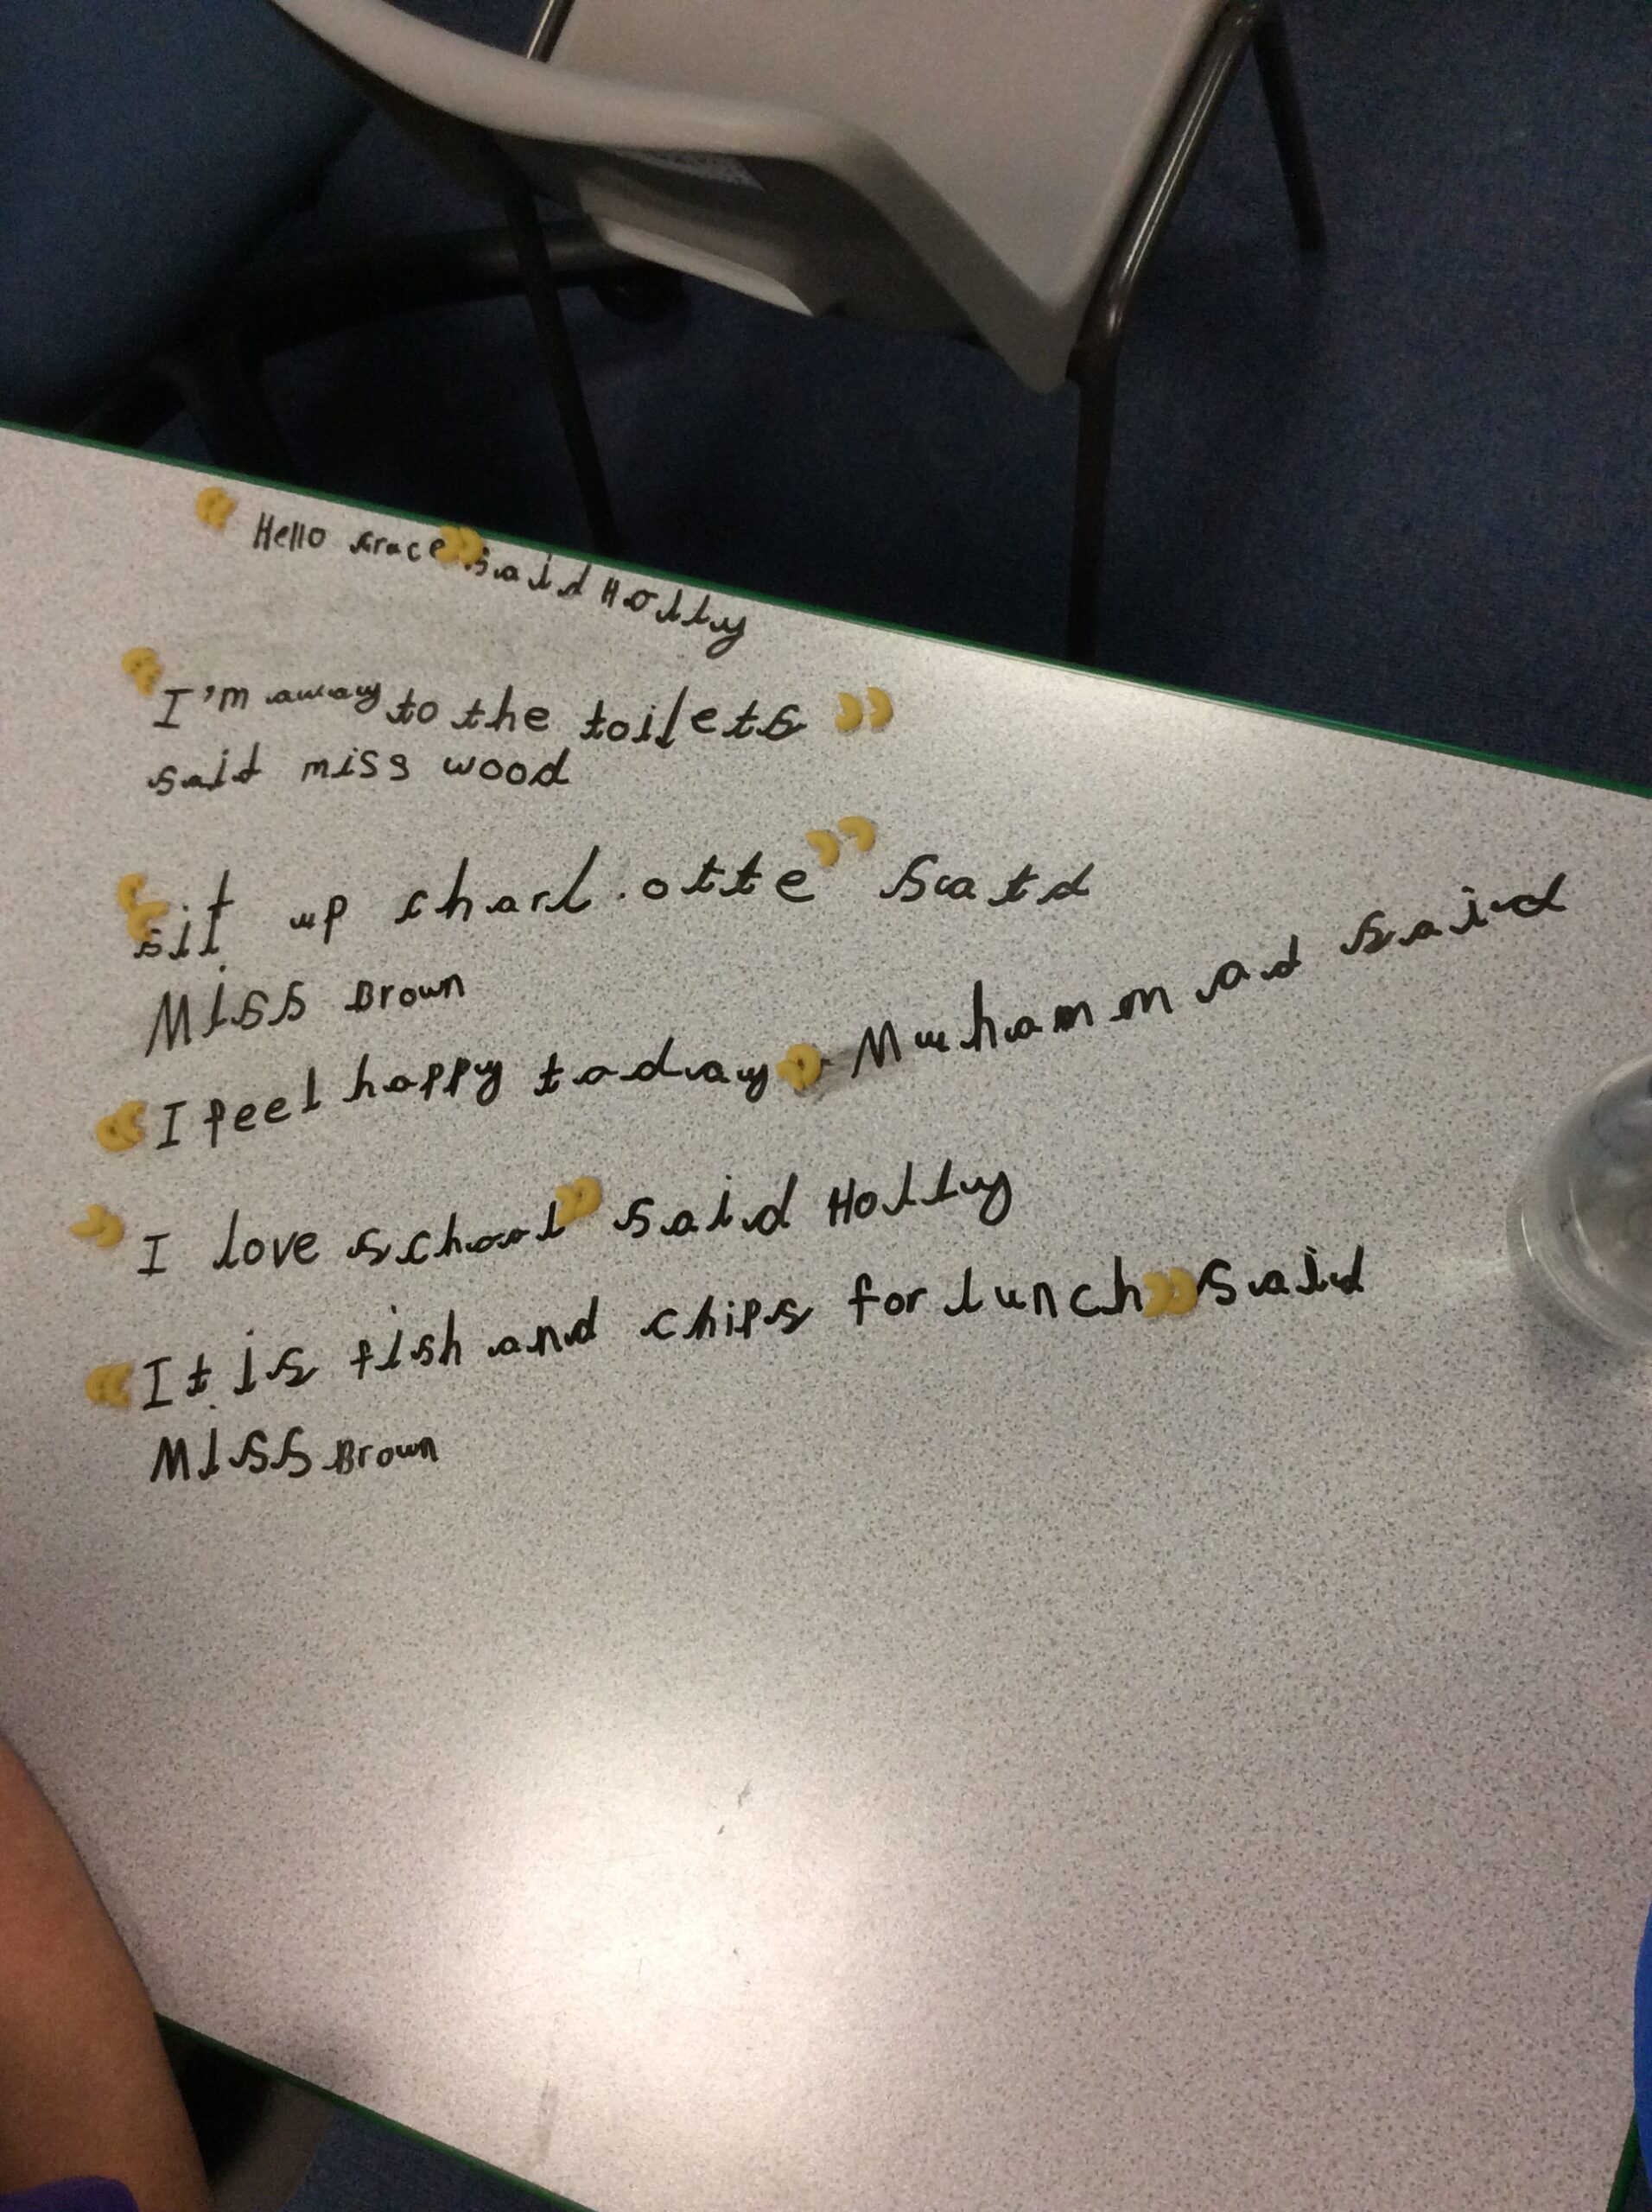 “Hello Grace” said Holly
“I'm away to the toilets”
said miss wood
“sit up charl.otte” said
Miss Brown
“I feel happy today” Muhammad said
”I love school” said Holly
“It is fish and chips for lunch” said
Miss Brown